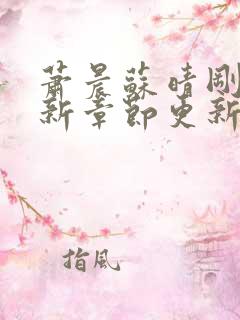 蕭晨蘇晴剛
新章節更新
指風